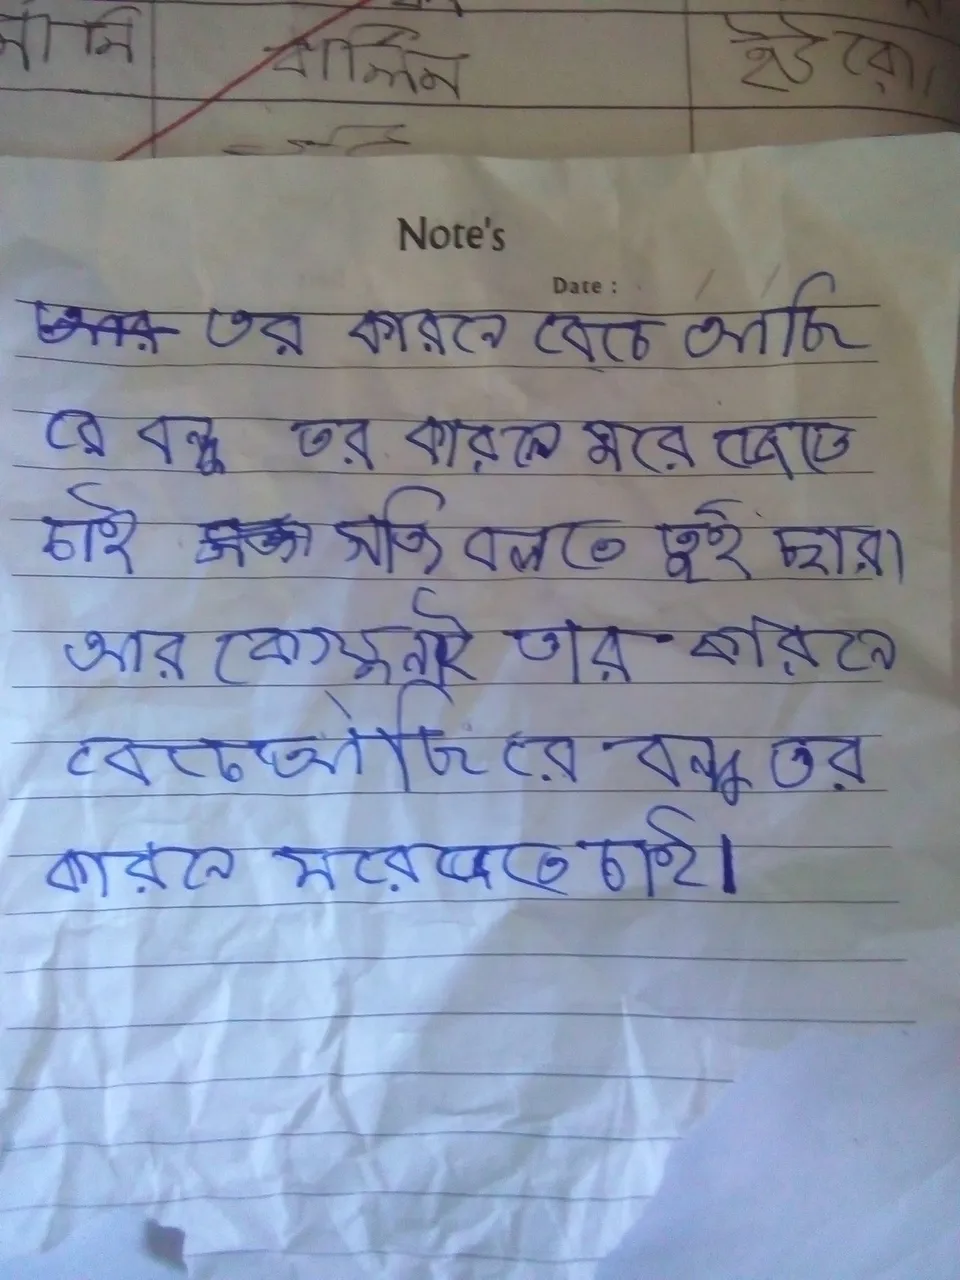 বার্লিন ইউরো।
Note's
Date :
তর কারনে বেচে আছি
রে বন্ধু তর কারনে মরে জেতে
চাই সত্তি বলতে তুই ছারা
আর কেও নাই তার কারনে
বেচে আছি রে বন্ধু তর
কারনে মরে জেতে চাই।